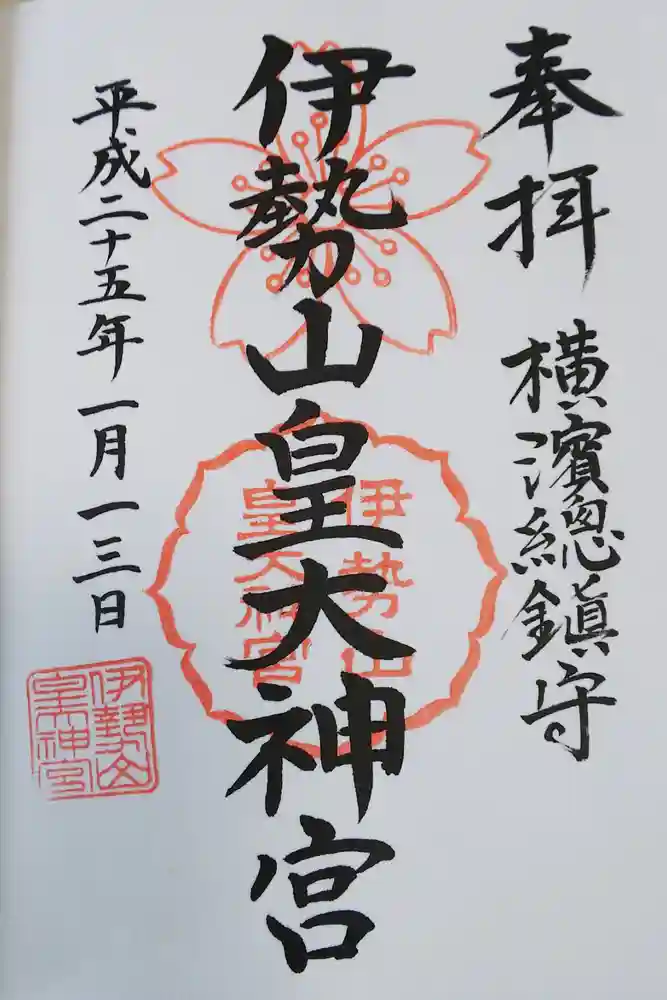 奉拝
横濱總鎮守
伊勢山皇大神宮
平成二十五年一月一三日
伊勢山
皇大神宮
伊勢山
皇大神宮